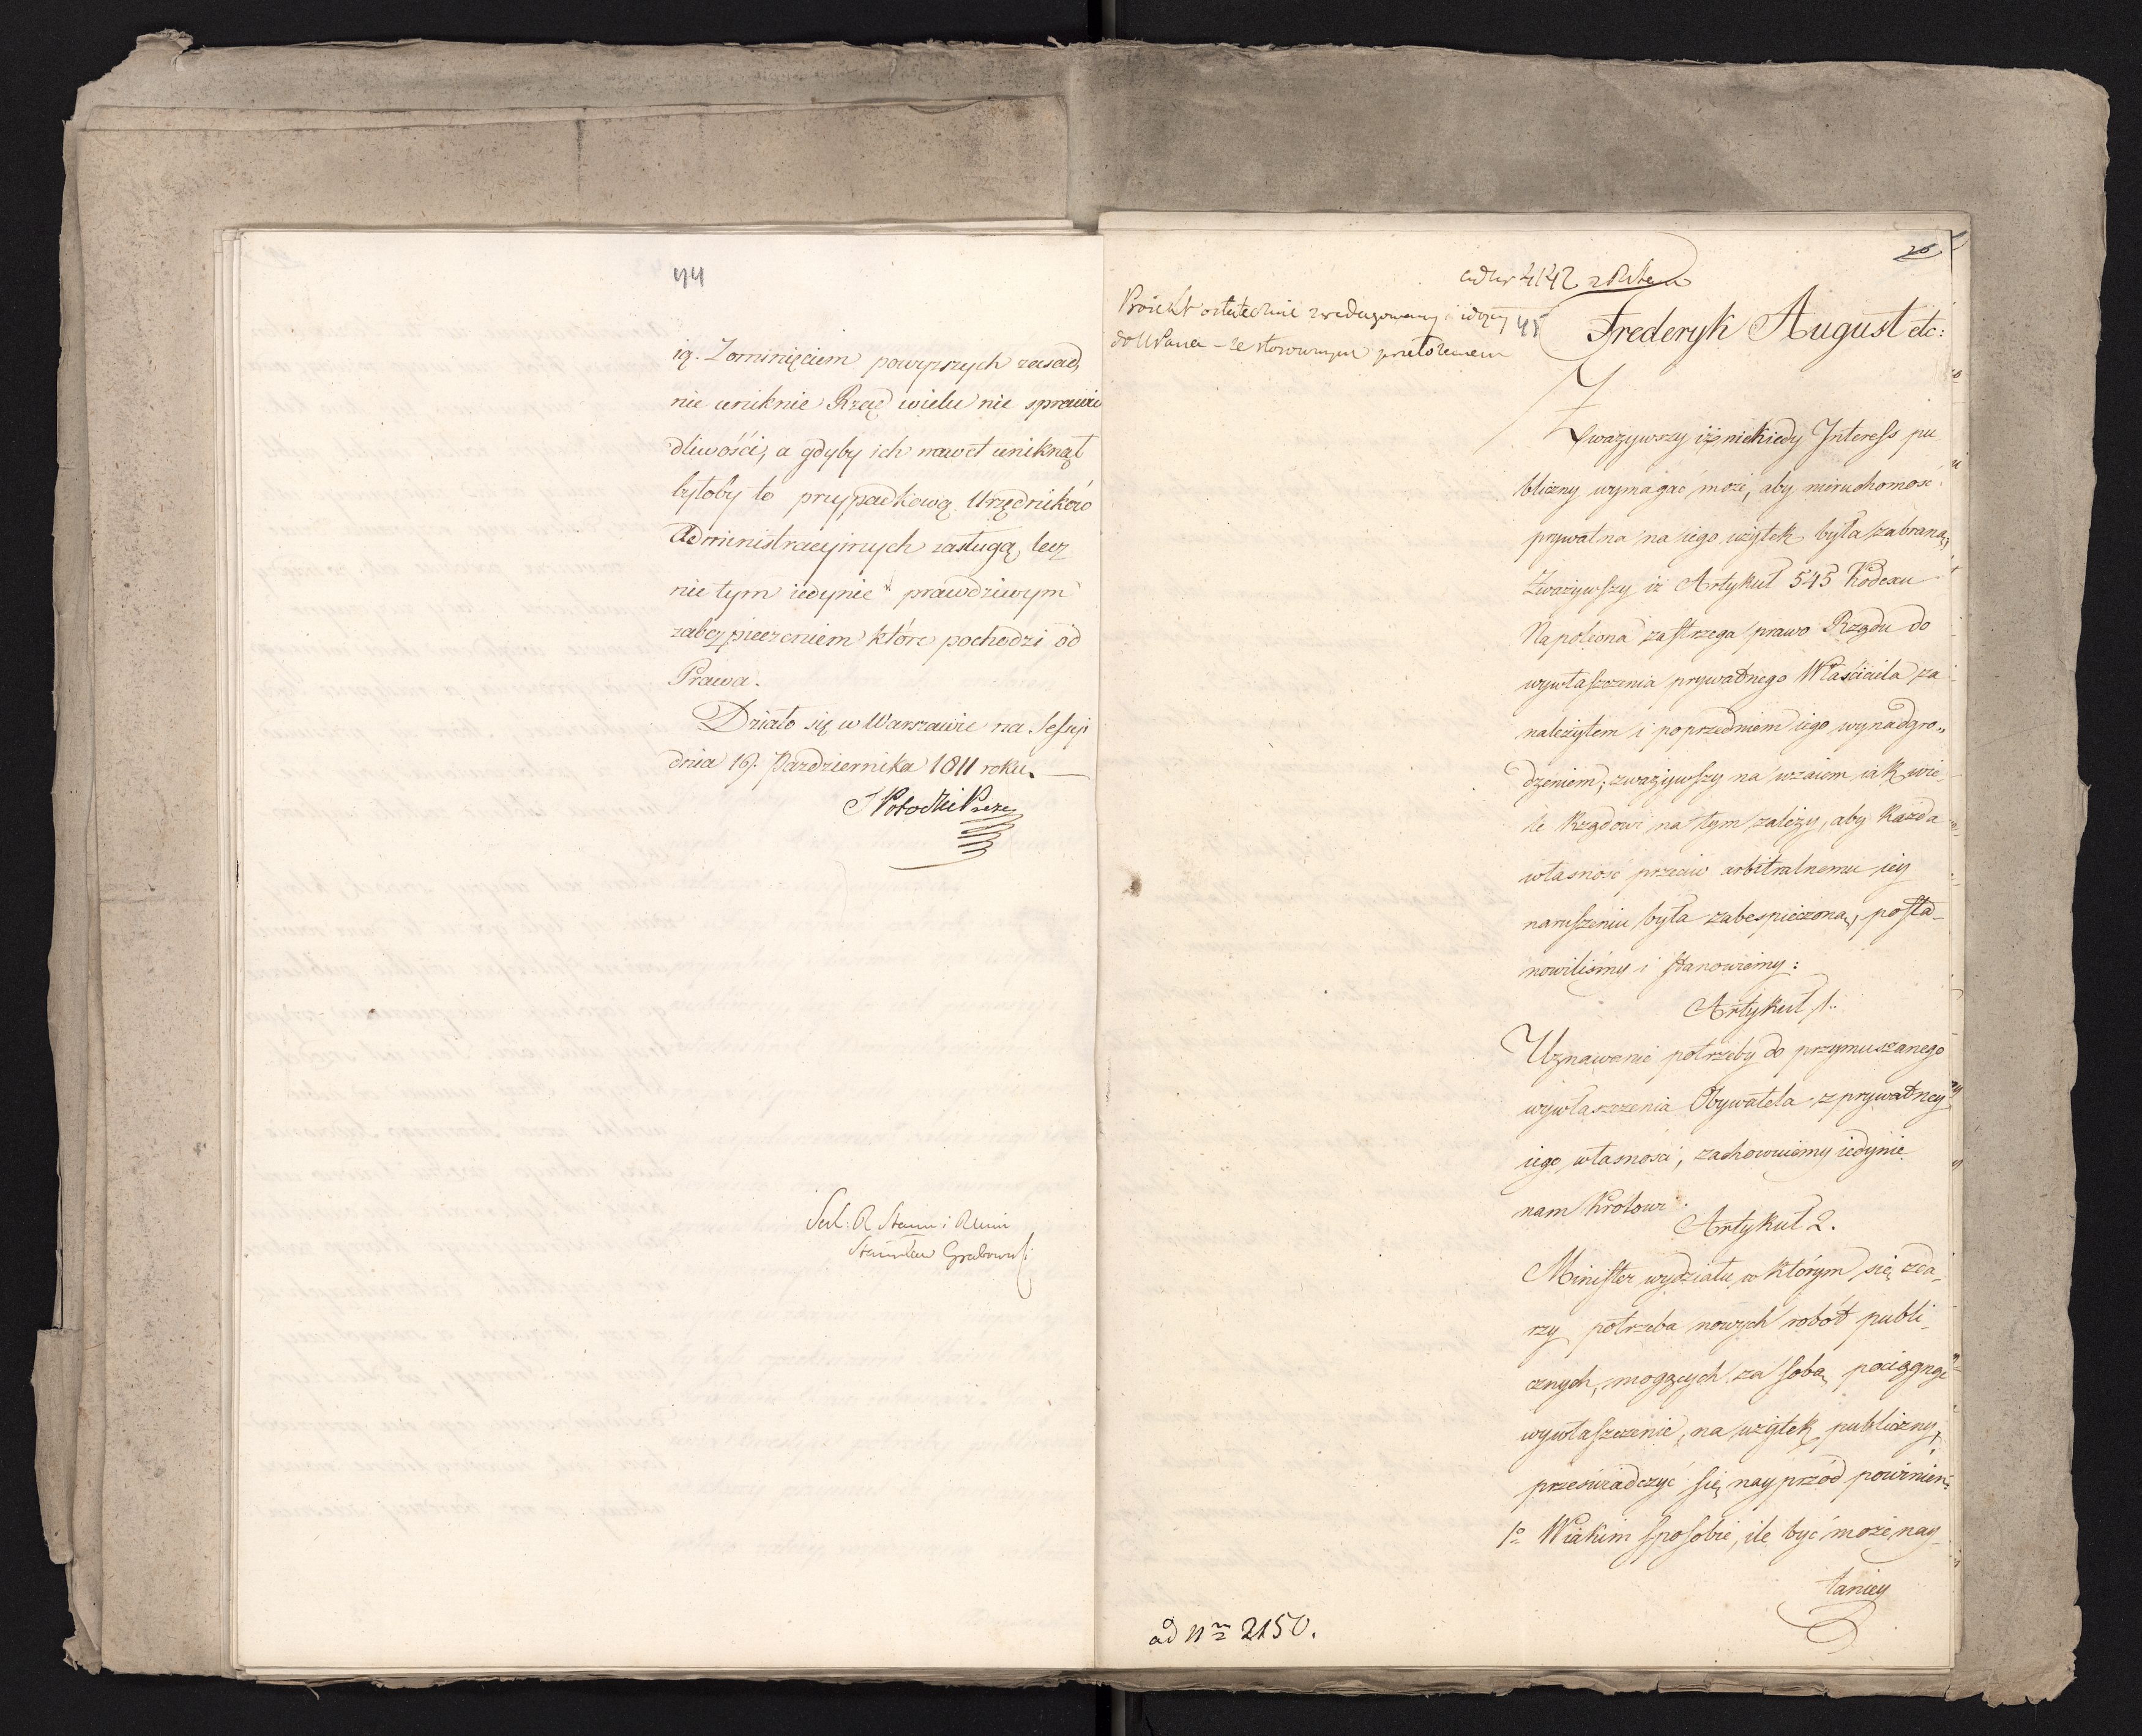 44
ią. Z ominięciem powyższych zasad,
nie uniknie Rząd wielu nie sprawie
dliwości, a gdyby ich nawet uniknął
byłoby to przypadkową Urzędników
Administracyjnych zasługą, lecz
nie tym iedynie prawdziwym
zabezpieczeniem które pochodzi od
Prawa.
Działo się w Warszawie na Sessyi
dnia 19. Października 1811 roku.
S Potocki Prezes
Sek: R Stanu i Min
Stanisław Grabowski
26
ad Nr 4142
Proiekt ostatecznie zredagowany i idący
do NPana – ze stosownym przełożeniem
45
Frederyk August etc:
Zważywszy iż niekiedy Interess pu
bliczny wymagać może, aby nieruchomość
prywatna na iego użytek była zabraną,
Zważywszy iż Artykuł 545 Kodexu
Napoleona zastrzega prawo Rządu do
wywłaszczenia prywatnego Właściciela za
należytem i poprzedniem iego wynadgro„
dzeniem; zważywszy na wzaiem iak wie-
le Rządowi na tym zależy, aby każda
własność przeciw arbitralnemu iey
naruszeniu była zabespieczona, posta-
nowiliśmy i stanowiemy:
Artykuł 1.
Uznawanie potrzeby do przymuszanego
wywłaszczenia Obywatela z prywatney
iego własności, zachowuiemy iedynie
nam Królowi.
Artykuł 2.
Minister wydziału w którym się zda-
rzy potrzeba nowych robót publi-
cznych, mogących za sobą pociągnąć
wywłaszczenie, na użytek publiczny,
przeświadczyć się nayprzód powinien:
1o W iakim sposobie, ile być może nay-
taniey
ad Nrm 2150.